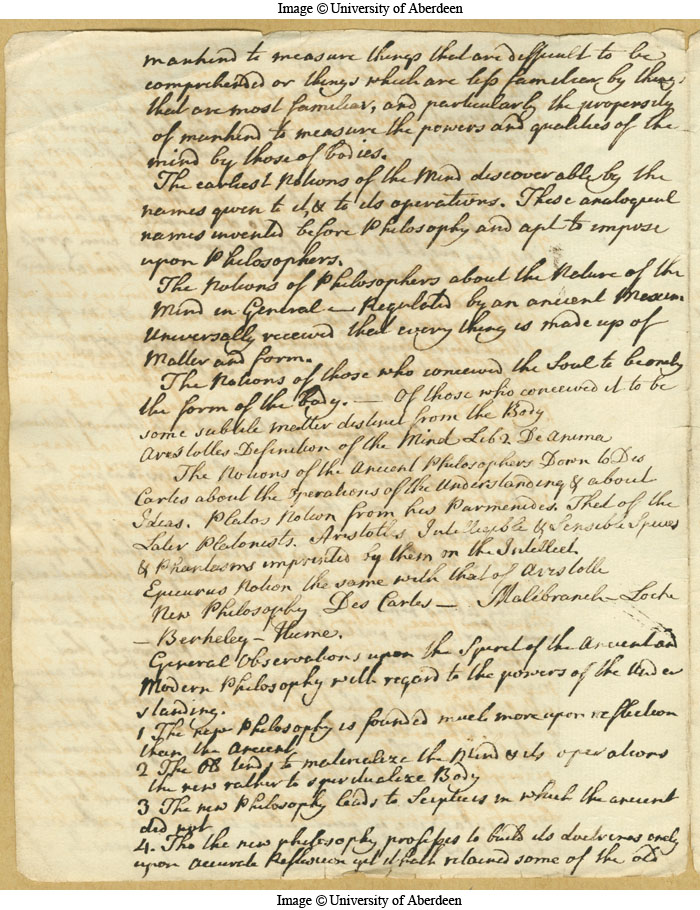 Image © University of Aberdeen
mankind to measure things that are difficult to be
comprehended or things which are less familiar by things
that are most familiar, and particularly the propensity
of mankind to measure the powers and qualities of the
mind by those of bodies.
The earliest Notions of the Mind discoverable by the
names given to it, & to its operations. These analogical
names invented before Philosophy and apt to impose
upon Philosophers.
The Notions of Philosophers about the Nature of the
Mind in General — Regulated by an ancient Maxim
Universally received that every thing is made up of
Matter and form.
The Notions of those who conceived the Soul to be only
the form of the body. — Of those who conceived it to be
some subtile matter distinct from the Body
Aristotles Definition of the Mind Lib 2 De Anima
The Notions of the Ancient Philosophers Down to Des
Cartes about the operations of the Understanding & about
Ideas. Platos Notion from his Parmenides. That of the
Later Platonists. Aristotles Intelligible & Sensible Species
& Phantasms imprinted by them on the Intellect
Epicurus Notion the same with that of Aristotle
New Philosophy Des Cartes — Malebranch — Locke
— Berkeley — Hume.
General Observations upon the Spirit of the Ancient and
Modern Philosophy with regard to the powers of the Under
standing.
1 The new Philosophy is founded much more upon reflection
than the Ancient
2 The Old tends to materialize the Mind & its operations
the new rather to spiritualize Body
3 The new Philosophy leads to Scepticism which the ancient
did not
4. Tho the new philosophy professes to build its doctrines only
upon accurate Reflexion yet it hath retained some of the old
Image © University of Aberdeen